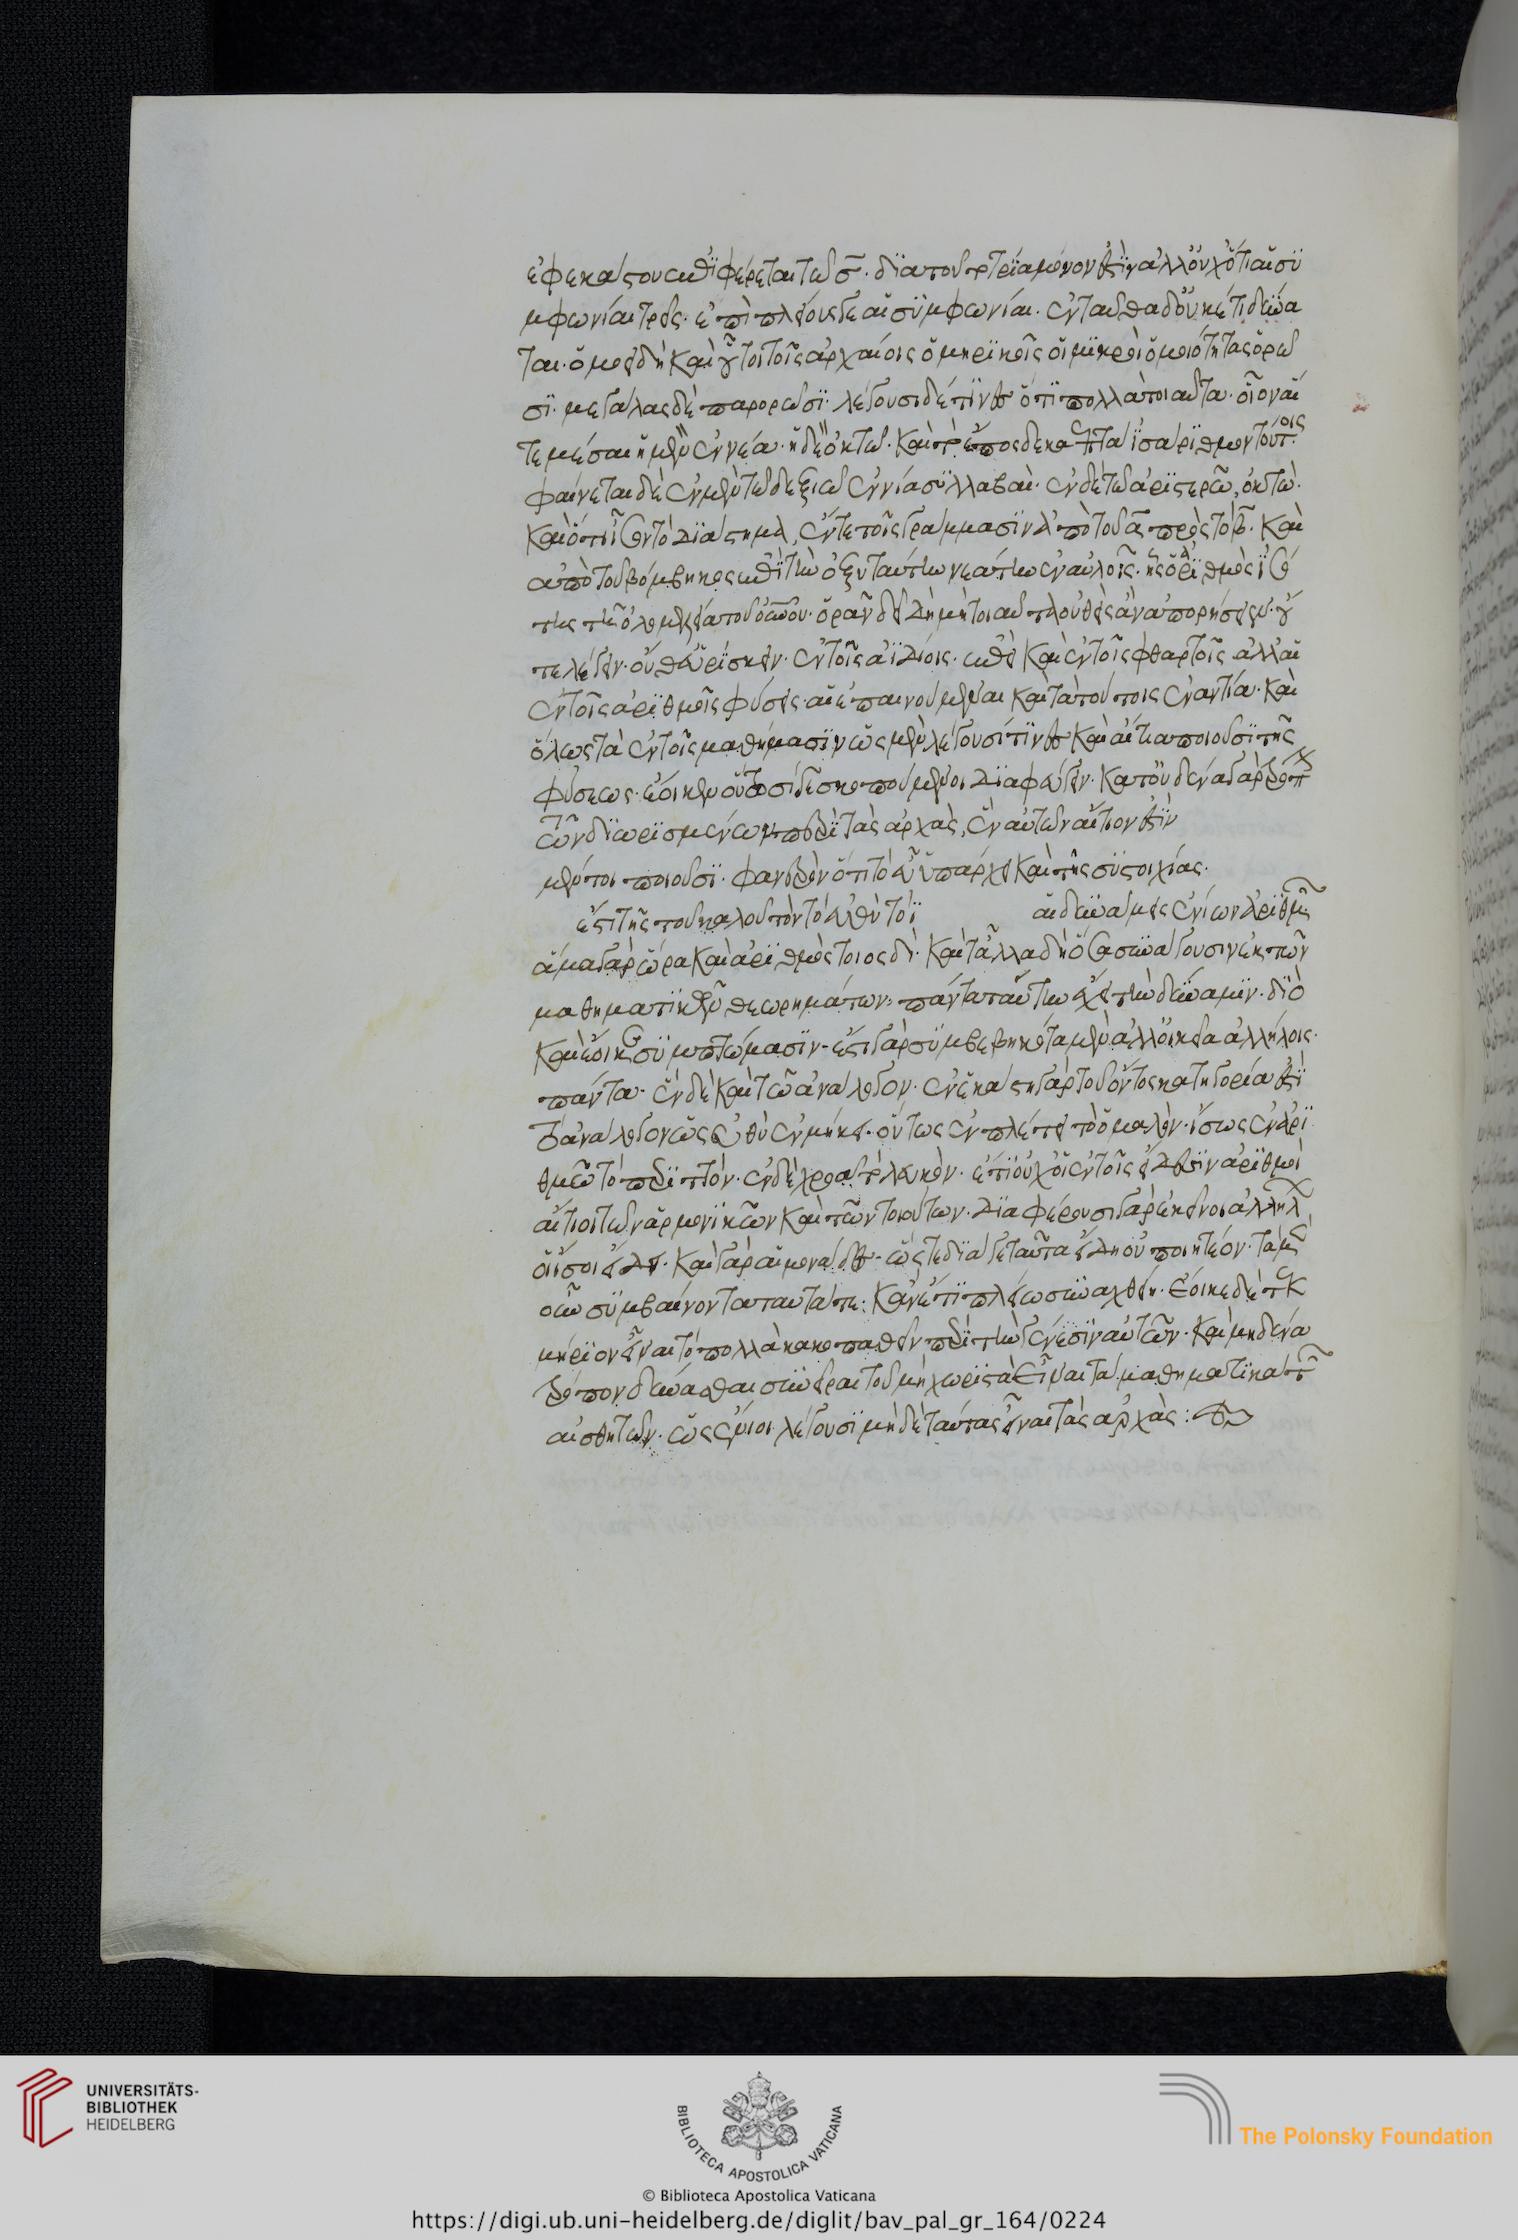 ἐφ ἑκάστου ἐπιφέρεται τὸ σ̄. διὰ τοῦτο τρία μόνον ἐστὶν ἀλλ' οὐχ ὅτι αἱ συ
μφωνίαι τρεῖς. ἐπεὶ πλείους δὲ αἱ συμφωνίαι. ἐνταῦθα δ' οὐκέτι δύνα
ται. ὅμοιοι δὴ καὶ οὗτοι τοῖς ἀρχαίοις ὁμηρικοῖς οἳ μικραὶ ὁμοιότητας ὁρῶ
σι. μεγάλας δὲ παρορῶσι. λέγουσι δέ τινες ὅτι πολλὰ τοιαῦτα. οἷον αἵ
τε μέσαι ἡ μὲν ἐννέα. ἡ δὲ ὀκτώ. καὶ τὸ ἔπος δεκαεπτὰ ἰσάριθμον τούτοις.
φαίνεται δὲ ἐν μὲν τῷ δεξιῷ ἐννέα συλλαβαὶ. ἐν δὲ τῷ ἀριστερῷ, ὀκτώ.
καὶ ὅτι ἴσον τὸ διάστημα, ἔν τε τοῖς γράμμασιν ἀπὸ τοῦ ᾱ πρὸς τὸ β̄. καὶ
ἀπὸ τοῦ βόμβηκος ἐπὶ τὴν ὀξυτάτην νεάτην ἐν αὐλοῖς. ἧς ὁ ἀριθμὸς ἴσο
της τῆ ὁλομελείᾳ τοῦ οὐνοῦ. ὁρᾶν δεῖ δὴ μὴ τοιαῦτα οὐθεὶς ἂν ἀπορήσειεν. οὔ
τε λέγειν. οὔθ' εὑρίσκειν. ἐν τοῖς ἀϊδίοις. ἐπεὶ καὶ ἐν τοῖς φθαρτοῖς ἀλλ' αἱ
ἐν τοῖς ἀριθμοῖς φύσεις. αἱ ἐπαινούμεναι καὶ τὰ τούτοις ἐναντία. καὶ
ὅλως τὰ ἐν τοῖς μαθήμασιν ὡς μὲν λέγουσί τινες καὶ αἴτια ποιοῦσι τῆς
φύσεως. ἔοικεν οὑτωσί γε σκοπούμενοι διαφεύγειν. κατ' οὐδένα γὰρ τρόπον
τῶν διωρισμένων περὶ τὰς ἀρχὰς, ἓν αὐτῶν αἴτιον ἐστὶν
μέντοι ποιοῦσι. φανερὸν ὅτι τὸ εὖ ὑπάρχει καὶ τῆς συστοιχίας.
ἐστὶ τῆς τοῦ καλοῦ τὸν τὸ εὐθὺ τὸ ἰ αἱ δυνάμεις ἐνίων ἀριθμῶν
ἅμα γὰρ ὥρα καὶ ἀριθμὸς τοιοσδὶ. καὶ τἆλλα δὴ ὅσα συνάγουσιν ἐκ τῶν
μαθηματικῶν θεωρημάτων. πάντα ταύτην ἔχει τὴν δύναμιν. διὸ
καὶ ἔοικε συμπτώμασιν. ἔστι γὰρ συμβεβηκότα μὲν ἀλλ' οἰκεῖα ἀλλήλοις.
πάντα. ἓν δὲ καὶ τῷ ἀνάλογον. ἐν ἑκάστη γὰρ τοῦ ὄντος κατηγορία ἐστὶ
τὸ ἀνάλογον ὡς εὐθὺ ἐν μήκει. οὕτως ἐν πλάτει τὸ ὁμαλὸν. ἴσως ἐν ἀρι
θμῷ τὸ περιττόν. ἐν δὲ χροιᾷ τὸ λευκὸν. ἔτι οὐχ οἱ ἐν τοῖς εἴδεσιν ἀριθμοὶ
αἴτιοι τῶν ἁρμονικῶν καὶ τῶν τοιούτων. διαφέρουσι γὰρ ἐκεῖνοι ἀλλήλων
οἱ ἴσοι εἴδει. καὶ γὰρ αἱ μονάδες. ὥστε διά γε ταῦτα εἴδη οὐ ποιητέον. τὰ μὲν
οὖν συμβαίνοντα ταῦτά τε: κἂν ἔτι πλείω συναχθείη. ἔοικε δὲ τεκ
μήριον εἶναι τὸ πολλὰ κακοπαθεῖν περὶ τὴν γένεσιν αὐτῶν. καὶ μηδένα
τρόπον δύνασθαι συνεῖραι τοῦ μὴ χωριστὰ εἶναι τὰ μαθηματικὰ τῶν
αἰσθητῶν. ὡς ἔνιοι λέγουσι μὴδὲ ταύτας εἶναι τὰς ἀρχὰς :
UNIVERSITÄTS-
BIBLIOTHEK
HEIDELBERG
BIBLIOTECA APOSTOLICA VATICANA
The Polonsky Foundation
© Biblioteca Apostolica Vaticana
https://digi.ub.uni-heidelberg.de/diglit/bav_pal_gr_164/0224